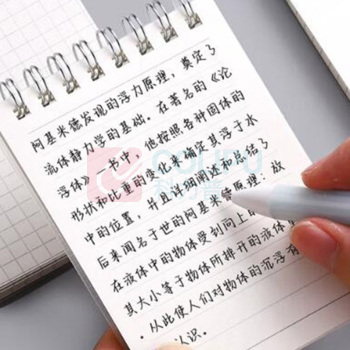 阿基米德发现的浮力原理,奠定了
流体静力学的基础。在著名的《论
浮体》一书中,他按照各种固体的
形状和比重的变化来确定其浮于水
中的位置,并且详细阐述和总结了
后来闻名于世的阿基米德原理:放
在液体中的物体受到向上的
其大小等于物体所排开的液体
从此使人们对物体的沉浮有
认识。